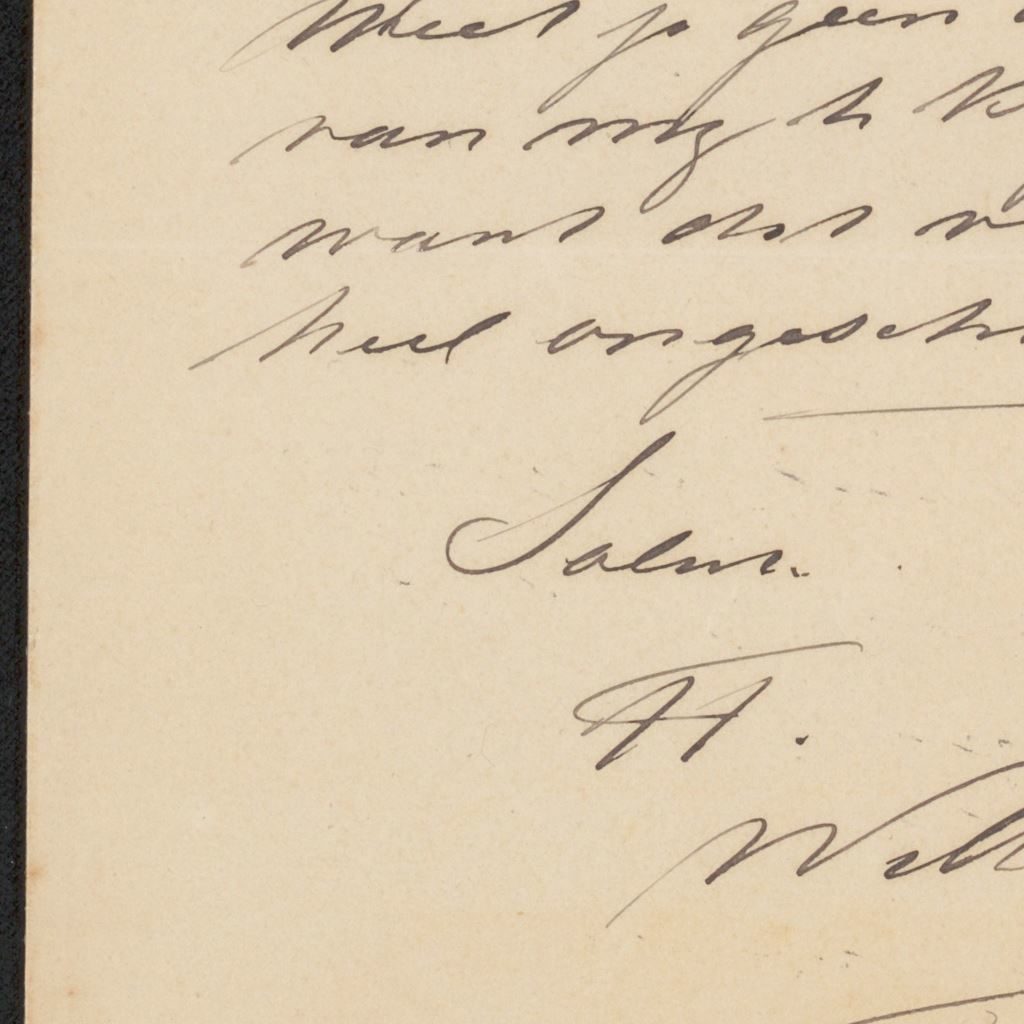 Weet je geen
van mij te k
want dat v
heel ongesch
Salut.
H.
Will